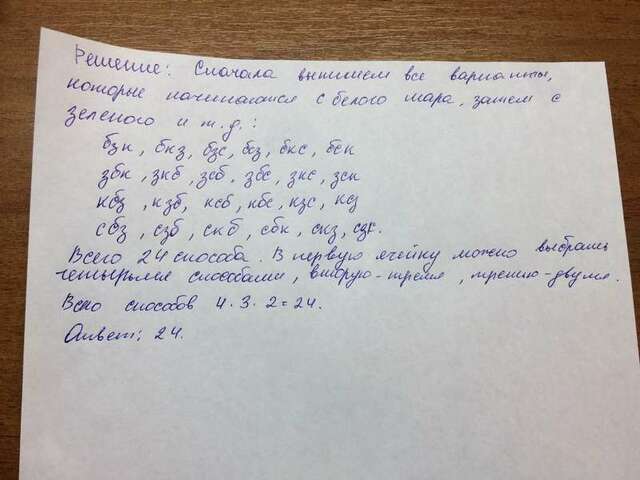 Решение: Сначала выпишем все варианты,
которые начинаются с белого шара, затем с
зеленого и т.д.:
бзк, бкз, бзс, бсз, бкс, бск
збк, зкб, зсб, збс, зкс, зск
кбз, кзб, ксб, кбс, кзс, ксз
сбз, сзб, скб, сбк, скз, сзк.
Всего 24 способа. В первую ячейку можно выбрать
четырьмя способами, вторую-тремя, третью-двумя.
Всего способов 4·3·2=24.
Ответ: 24.